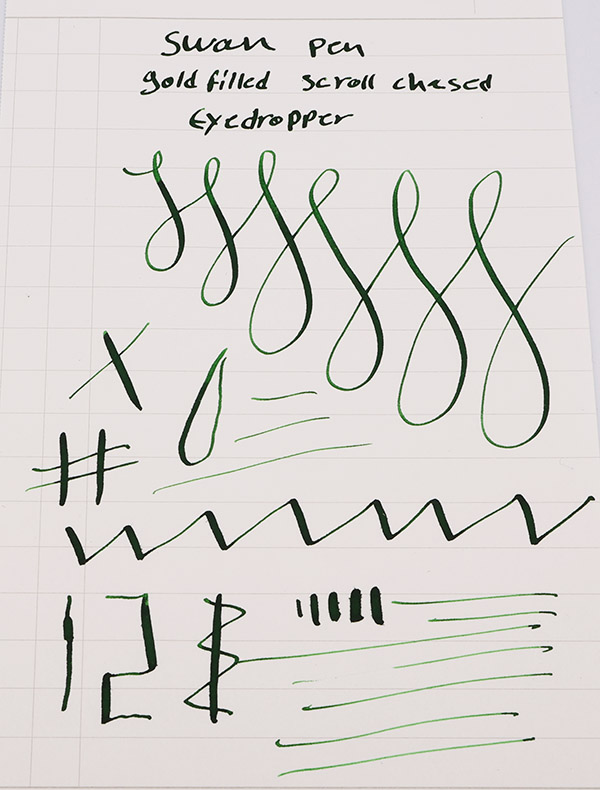 Swan pen
gold filled scroll chased
Eyedropper